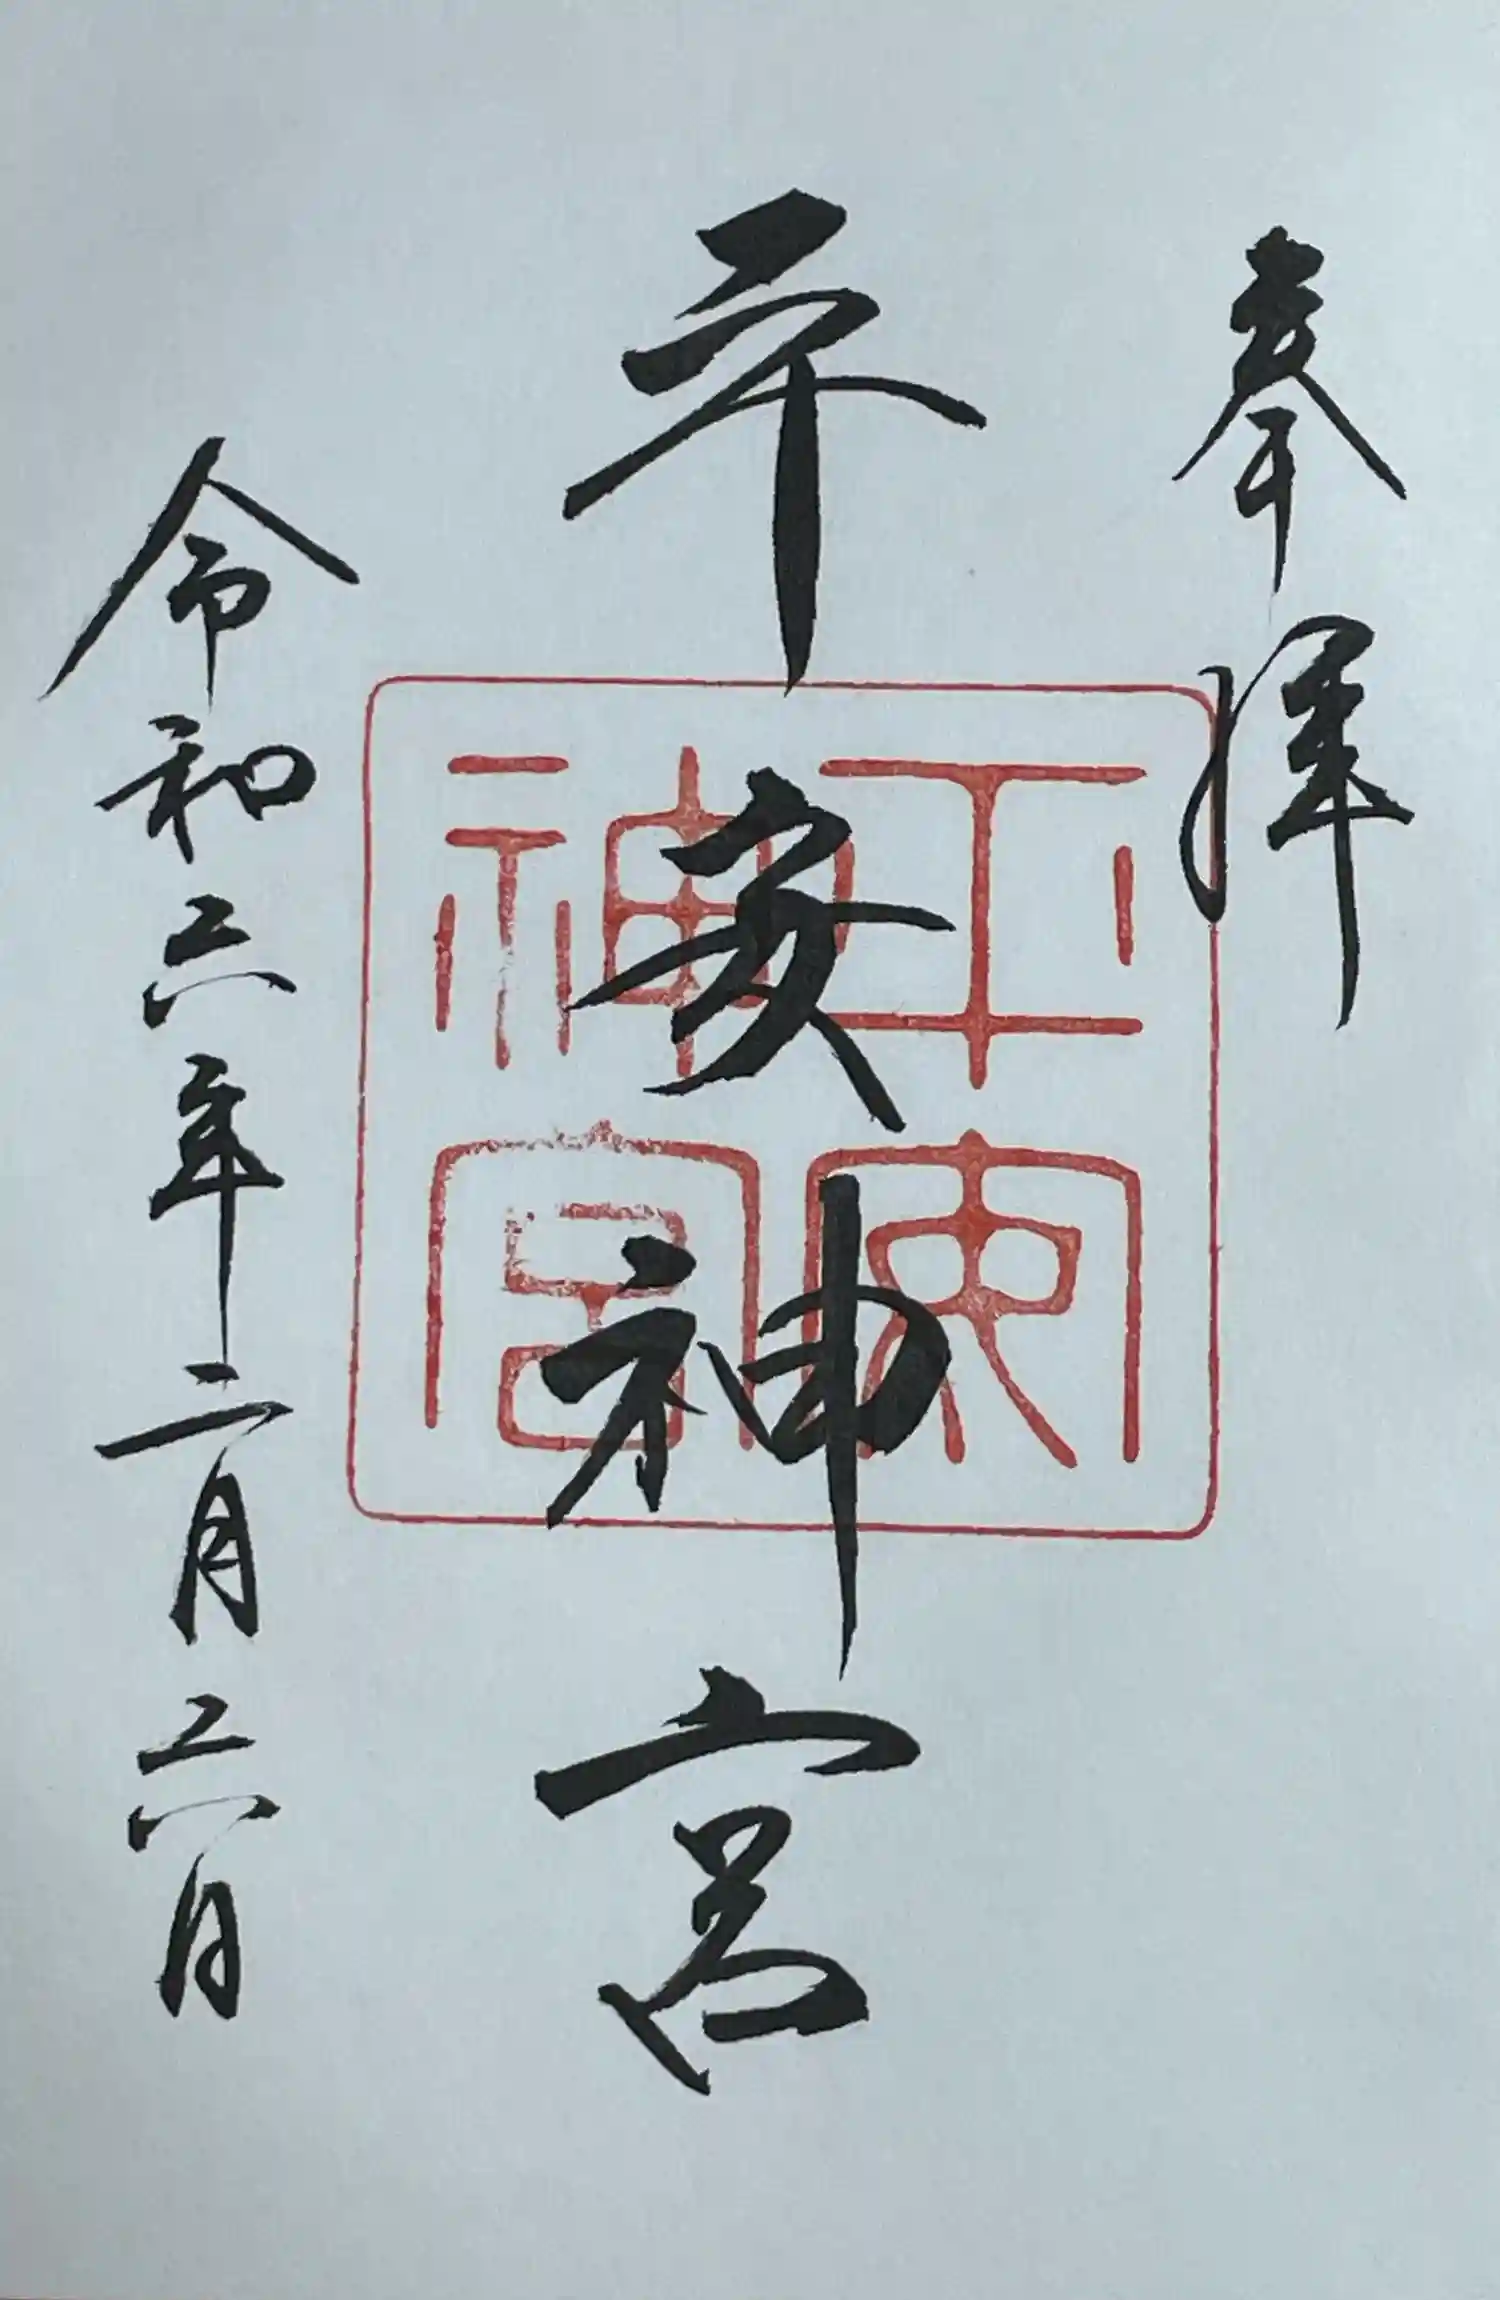 奉拝
平安神宮
平安
神宮
令和六年二月六日